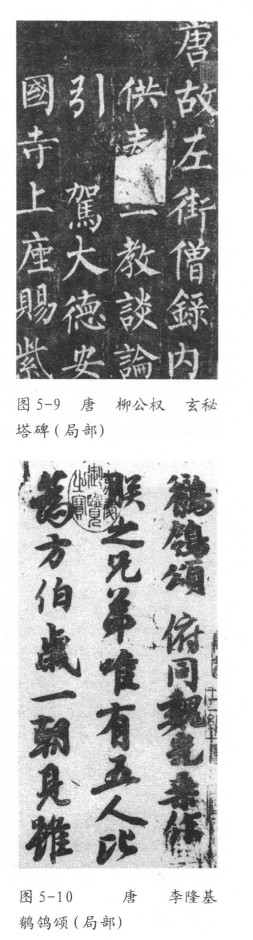 唐故左街僧錄內
供一教談論
引 駕大德安
國寺上座賜紫
图5-9 唐 柳公权 玄秘
塔碑(局部)
鶺鴒頌 俯同魏光乘作
朕之兄弟唯有五人比
為方伯歲一朝見雖
图5-10 唐 李隆基
鹡鸰颂(局部)